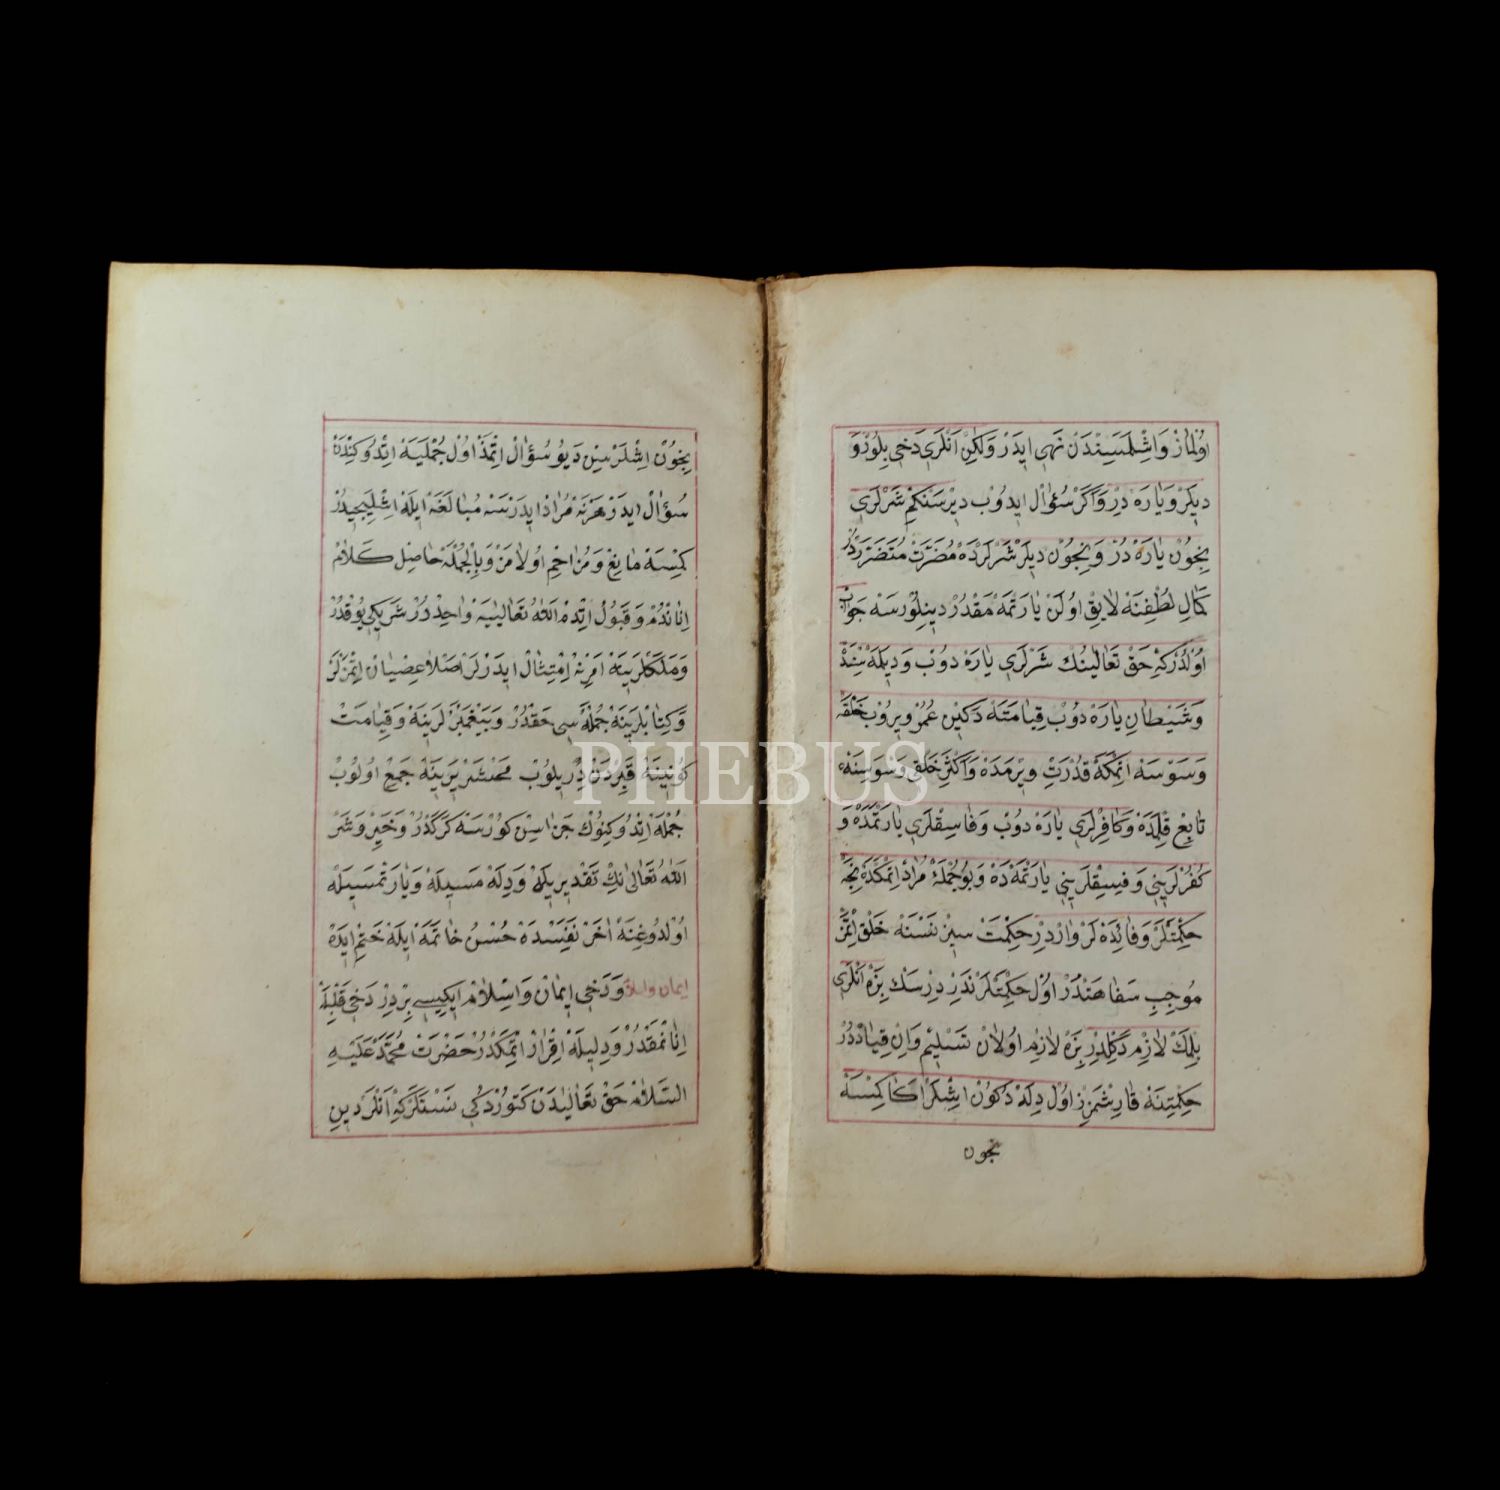 اُولْمَازْ وَاِشْلَمَسِنْدَنْ نَهِي اِيدَرْ وَلٰكِنْ اَنْلَرِي دَخِي بِلُورْ وَ
دِيلَرْ وَيَارَهْ دِرْ وَاَكَرْ سُؤَالْ اِيدُوبْ دِيرْسَنْكِمْ شَرْلَرِي
نِچُونْ يَارَهْ دُرْ وَنِچُونْ دِيلَرْ شَرْلَرْدَهْ مُضَرَّتْ مُتَضَرَّرْدُرْ
كَمَالِ لُطْفِنَهْ لَايِقْ اُولَنْ يَارَتْمَهْ مَقْدُرْ دِينِلُورْسَهْ جَوَابْ
اُولْدُرْكِهْ حَقْ تَعَالٰينُكْ شَرْلَرِي يَارَهْ دُوبْ وَدِيلَهْ سِنْدَهْ
وَشَيْطَانِ يَارَهْ دُوبْ قِيَامَتَهْ دَكِينْ عُمُرْ وِيرُوبْ خَلْقَهْ
وَسْوَسَهْ اِتْمَكَهْ قُدْرَتْ وِيرْمَدَهْ وَاَكْثَرِ خَلْقِ وَسْوَسِنَهْ
تَابِعْ قِلْمَدَهْ وَكَافِرْلَرِي يَارَهْ دُوبْ وَفَاسِقْلَرِي يَارَتْمَدَهْ وَ
كُفُرْلَرِينِي وَفِسِقْلَرِينِي يَارَتْمَهْ دَهْ وَبُو جُمْلَهْ مُرَادْ اِتْمَكْدَهْ نِجَهْ
حِكْمَتْلَرْ وَفَائِدَهْ لَرْ وَارْدِرْ حِكْمَتْ سِيزْ نَسْنَهْ خَلْقْ اِتْمَزْ
مُوجِبِ سَفَاهَتْدُرْ اُولْ حِكْمَتْلَرْ نَدِرْ دِرْسَكْ بِزَهْ اَنْلَرِي
بِلْمَكْ لَازِمْ دَكِلْدِرْ بِزَهْ لَازِمْ اُولَانْ تَسْلِيمْ وَاِنْقِيَادْدُرْ
حِكْمَتِنَهْ قَارِشْمَزِزْ اُولْ دِلَهْ دُكُونْ اِشْلَرْ اَكَا كِمْسَهْ
نچون
نِچُونْ اِشْلَرْسِنْ دَيُو سُؤَالْ اِتْمَزْ اُولْ جُمْلَيَهْ اِتْدُوكِنْدَهْ
سُؤَالْ اِيدَرْ هَرْ نَهْ مُرَادْ اِيدَرْسَهْ مُبَالَغَهْ اِيلَهْ اِشْلَيِجِيدُرْ
كِمْسَهْ مَانِعْ وَمُزَاحِمْ اُولَامَزْ وَبِالْجُمْلَهْ حَاصِلِ كَلَامْ
اِنَانْدُمْ وَقَبُولْ اِتْدِمْ اللهُ تَعَالٰييَهْ وَاحِدْدُرْ شَرِيكِي يُوقْدُرْ
وَمَلٰئِكَلَرِينَهْ اَمْرِنَهْ اِمْتِثَالْ اِيدَرْلَرْ اَصْلَا عِصْيَانْ اِتْمَزْلَرْ
وَكِتَابْلَرِينَهْ جُمْلَهْ سِي حَقْدُرْ وَپَيْغَمْبَرْلَرِينَهْ وَقِيَامَتْ
كُونِينَهْ قَبِرْدَنْ دِرِيلُوبْ مَحْشَرْ يَرِينَهْ جَمِعْ اُولُوبْ
جُمْلَهْ اِتْدُوكِنُوكْ جَزَاسِنْ كُورْسَهْ كَرَكْدُرْ وَخَيِرْ وَشَرْ
اللهُ تَعَالٰىنِكْ تَقْدِيرِيلَهْ وَدِلَهْ مَسِيلَهْ وَيَارَتْمَسِيلَهْ
اُولْدُوغِنَهْ اٰخَرْ نَفَسْدَهْ حُسْنُ خَاتِمَهْ اِيلَهْ خَتْمْ اِيدَهْ
ايمان واسلام وَدَخِي اِيمَانْ وَاِسْلَامْ اِيكِيسِي بِرْدِرْ دَخِي قَلْبِلَهْ
اِنَانْمَقْدُرْ وَدِلِيلَهْ اِقْرَارْ اِتْمَكْدُرْ حَضْرَتْ مُحَمَّدْ عَلَيْهِ
السَّلَامْ حَقْ تَعَالٰيدَنْ كَتُورْدُكِي نَسْنَلَرْكِهْ اَنْلَرْ دِينِ